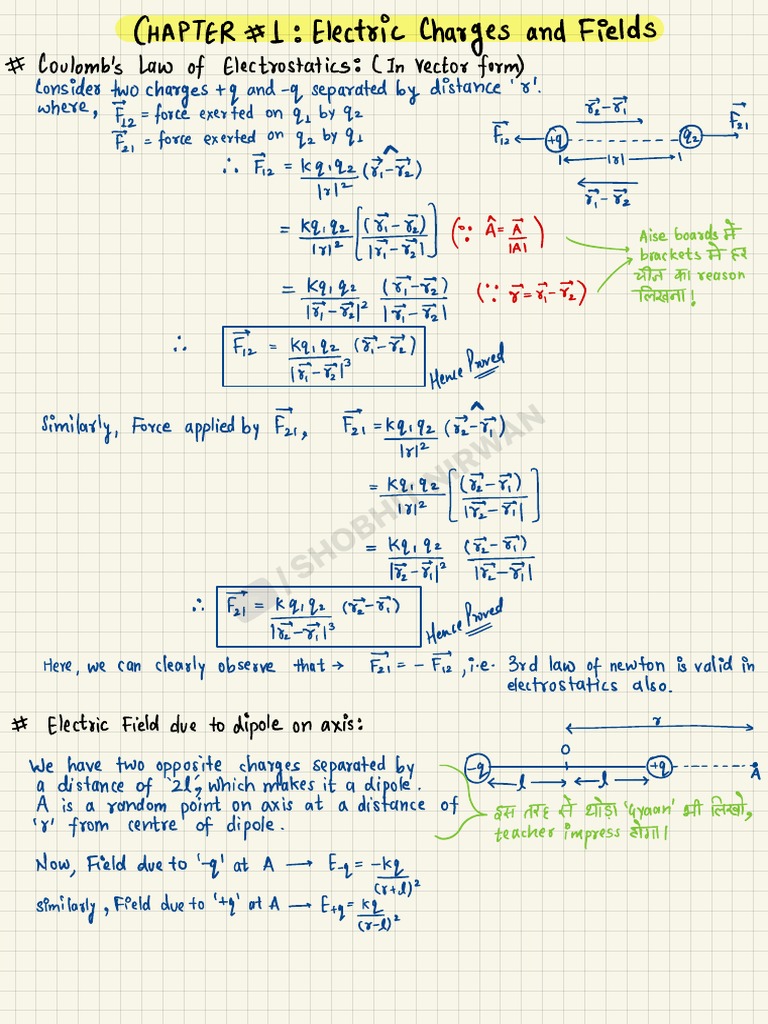 CHAPTER #1: Electric Charges and Fields
# Coulomb's Law of Electrostatics: (In vector form)
Consider two charges +q and -q separated by distance 'r'.
where, F⃗₁₂ = force exerted on q₁ by q₂
F⃗₂₁ = force exerted on q₂ by q₁
r⃗₂-r⃗₁
F⃗₁₂ +q q₂ F⃗₂₁
|r|
r⃗₁-r⃗₂
∴ F⃗₁₂ = kq₁q₂/|r|² (r⃗₁-r⃗₂)^
= kq₁q₂/|r|² [(r⃗₁-r⃗₂)/|r⃗₁-r⃗₂|] (∵ Â = A⃗/|A|)
= kq₁q₂/|r⃗₁-r⃗₂|² (r⃗₁-r⃗₂)/|r⃗₁-r⃗₂| (∵ r⃗ = r⃗₁-r⃗₂)
Aise boards में
brackets में हर
चीज का reason
लिखना!
∴ F⃗₁₂ = kq₁q₂/|r⃗₁-r⃗₂|³ (r⃗₁-r⃗₂)
Hence Proved
Similarly, Force applied by F⃗₂₁, F⃗₂₁ = kq₁q₂/|r|² (r⃗₂-r⃗₁)^
= kq₁q₂/|r|² [(r⃗₂-r⃗₁)/|r⃗₂-r⃗₁|]
= kq₁q₂/|r⃗₂-r⃗₁|² (r⃗₂-r⃗₁)/|r⃗₂-r⃗₁|
∴ F⃗₂₁ = kq₁q₂/|r⃗₂-r⃗₁|³ (r⃗₂-r⃗₁)
Hence Proved
/ SHOBHIT NIRWAN
Here, we can clearly observe that → F⃗₂₁ = - F⃗₁₂, i.e. 3rd law of newton is valid in
electrostatics also.
# Electric Field due to dipole on axis:
We have two opposite charges separated by
a distance of '2l', which makes it a dipole.
A is a random point on axis at a distance of
'r' from centre of dipole.
r
O
-q +q A
l l
इस तरह से थोड़ा 'Gyaan' भी लिखो,
teacher impress होगा।
Now, Field due to '-q' at A → E-q = -kq/(r+l)²
similarly, Field due to '+q' at A → E+q = kq/(r-l)²